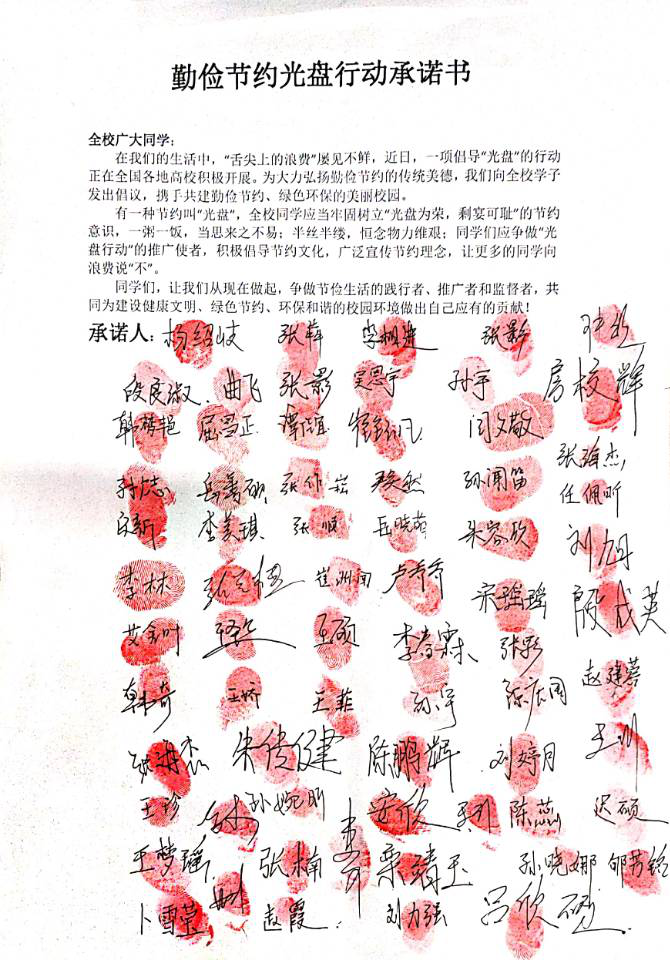 勤俭节约光盘行动承诺书
全校广大同学：
在我们的生活中，“舌尖上的浪费”屡见不鲜，近日，一项倡导“光盘”的行动
正在全国各地高校积极开展。为大力弘扬勤俭节约的传统美德，我们向全校学子
发出倡议，携手共建勤俭节约、绿色环保的美丽校园。
有一种节约叫“光盘”，全校同学应当牢固树立“光盘为荣，剩宴可耻”的节约
意识，一粥一饭，当思来之不易；半丝半缕，恒念物力维艰；同学们应争做“光
盘行动”的推广使者，积极倡导节约文化，广泛宣传节约理念，让更多的同学向
浪费说“不”。
同学们，让我们从现在做起，争做节俭生活的践行者、推广者和监督者，共
同为建设健康文明、绿色节约、环保和谐的校园环境做出自己应有的贡献！
承诺人：杨绍岐 张萍 张影
段良淑 曲飞 张影 吴思宇 孙宇 房校辉
韩梦艳 屈雪正 闫文敬
张海杰
孙志 张作崧 孙闻笛 任佩昕
宋新 李美琪 张顺 岳晓萌 朱容欣 刘旭
李林 崔洲闻 卢奇奇 宋瑶瑶 殷成英
艾金叶 王硕 李尚霖 张彩
赵建蓉
韩奇 王娇 王菲 孙宇 陈庆国
朱传健 陈鹏辉 刘婷月 王训
王珍 孙婉昕 安欣 陈燕 迟硕
王梦瑶 张楠 栗靖玉 孙晓娜 邹芳铭
卜雪莹 赵霞 刘力强 吕欣硕